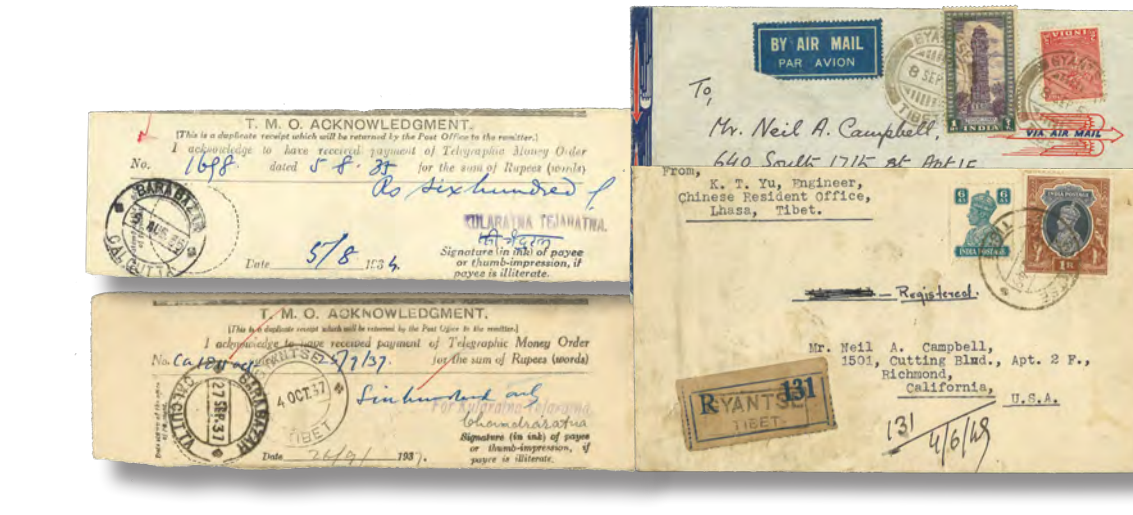 T. M. O. ACKNOWLEDGMENT.
[This is a duplicate receipt which will be returned by the Post Office to the remitter.]
I acknowledge to have received payment of Telegraphic Money Order
No. 1698 dated 5 8 · 35 for the sum of Rupees (words)
Rs six hundred
BARA BAZAR
AUG 35
CALCUTTA
KULARATNA TEJARATNA.
Signature (in ink) of payee
or thumb-impression, if
payee is illiterate.
Date 5/8 193
T. M. O. ACKNOWLEDGMENT.
[This is a duplicate receipt which will be returned by the Post Office to the remitter.]
I acknowledge to have received payment of Telegraphic Money Order
No. Ca dated 25/9/37. for the sum of Rupees (words)
Six hundred only
BARA BAZAR
27 SEP. 37
CALCUTTA
GYANTSE
4 OCT. 37
TIBET
For Kularatna Tejaratna
Chandraratna
Signature (in ink) of payee
or thumb-impression, if
payee is illiterate.
Date 26/9/ 1937.
BY AIR MAIL
PAR AVION
GYANTSE
8 SEP
TIBET
INDIA
INDIA
VIA AIR MAIL
To,
Mr. Neil A. Campbell,
640 South 17th St Apt 1F
From,
K. T. Yu, Engineer,
Chinese Resident Office,
Lhasa, Tibet.
6 AS 6 AS
INDIA POSTAGE
INDIA POSTAGE
1 R
Registered.
Mr. Neil A. Campbell,
1501, Cutting Blvd., Apt. 2 F.,
Richmond,
California,
U.S.A.
R GYANTSE 131
TIBET
131
4/6/49